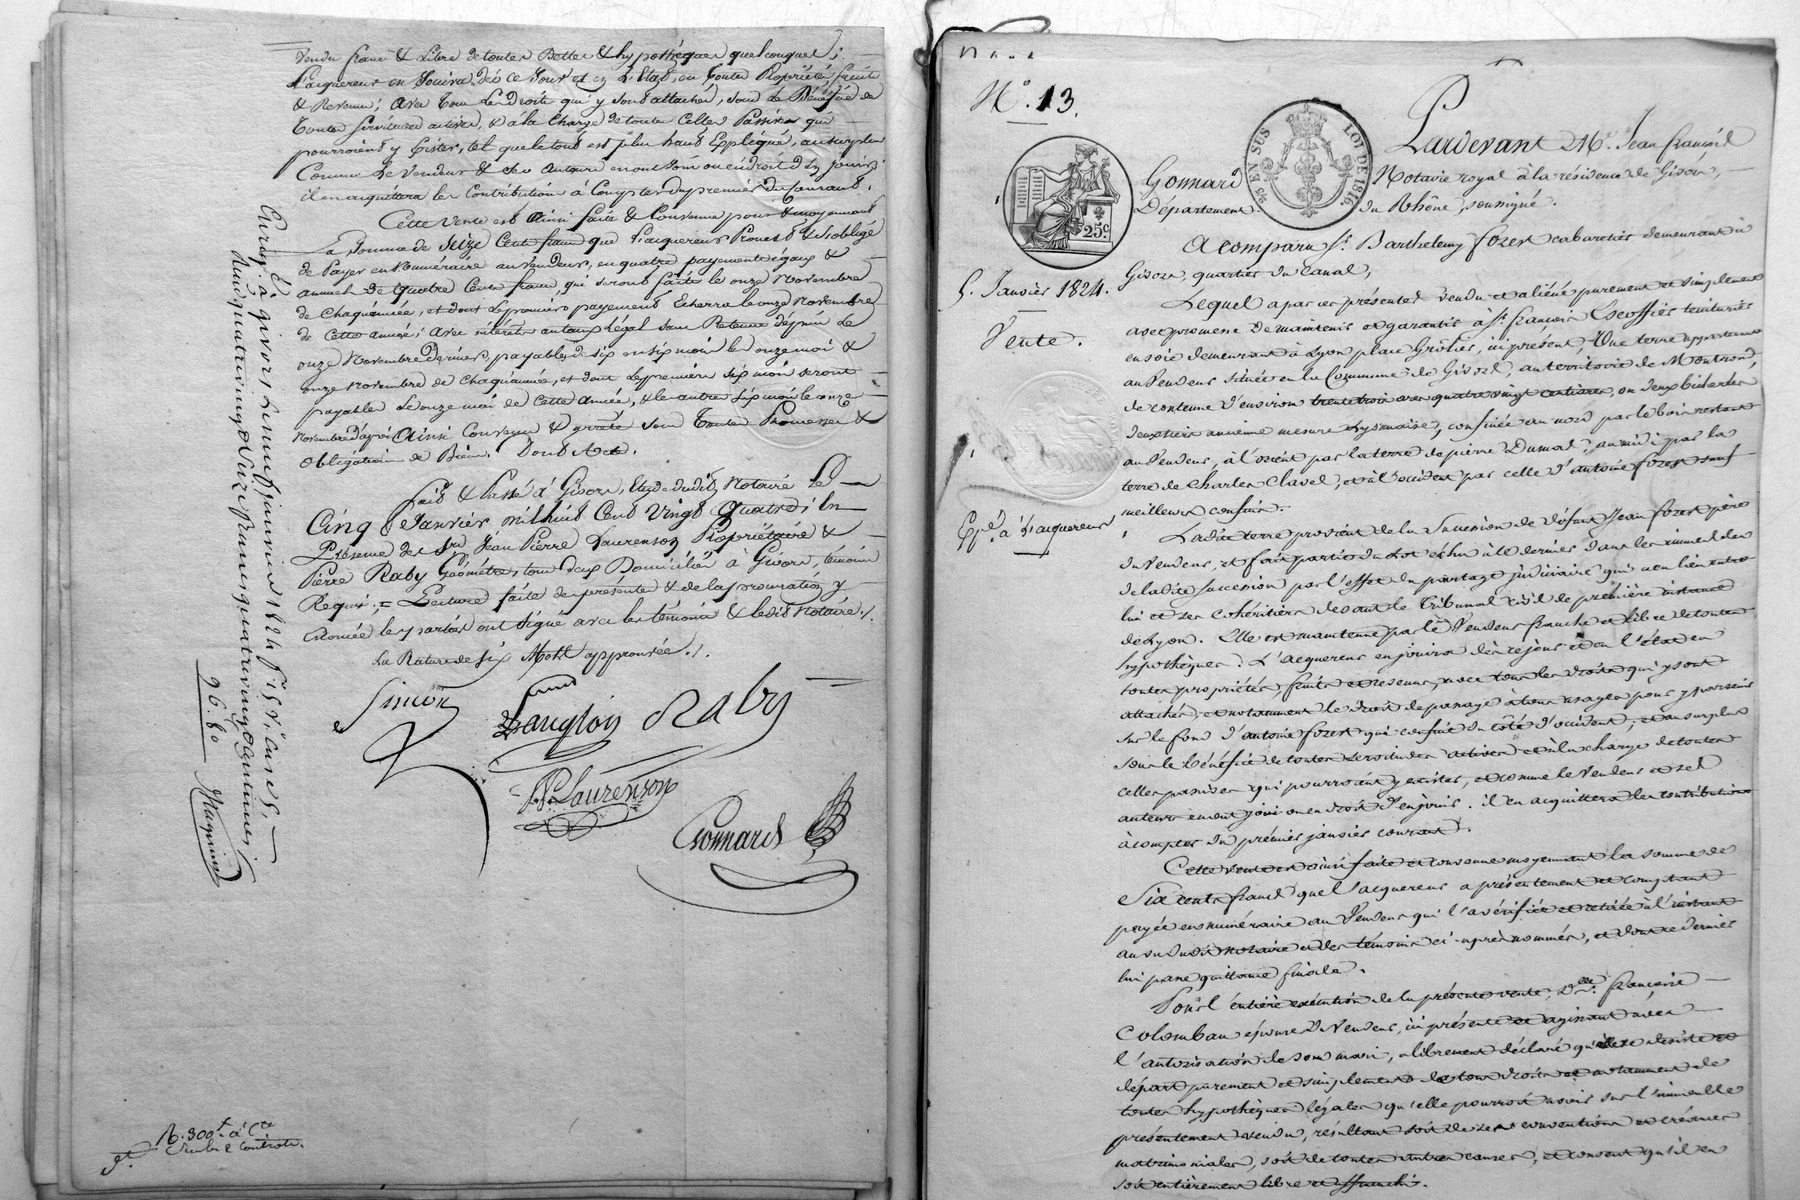 vendu franc & libre de toutes Dettes & hypothèques quelconques;
L'acquereur en Jouira dès ce Jour et en L'Etat, en Toute Propriété, fruits
& Revenus; avec Tous les Droits qui y sont attachés, sous le Bénéfice de
Toutes servitudes actives, & à la Charge de toutes Celles Passives qui
pourroient y Exister, tel que le tout est plus haut Expliqué, au surplus
Comme le Vendeur & ses auteurs en ont Joui ou eu droit d'En Jouir;
il en acquittera les Contributions à Compter du premier du Courant.
Cette Vente est Ainsi faite & Convenue pour & moyennant
La Somme de Seize Cents francs que L'acquereur Promet & s'oblige
de Payer en Numéraire au Vendeur, en quatre payements égaux &
annuels de quatre Cents francs, qui seront faits le onze Novembre
de Chaque année, et dont le premier payement Echerra le onze Novembre
de Cette année; avec intérêts au taux Légal sans Retenue depuis le
onze Novembre dernier, payables de six en six mois les onze mai &
onze novembre de Chaque année, et dont les premiers six mois seront
payables le onze mai de Cette année, & les autres six mois le onze
Novembre d'après Ainsi Convenu & arrêté sous Toutes Promesses &
Obligations de Biens. Dont Acte.
Fait & Passé à Givors, Etude dudit Notaire Le
Cinq Janvier mil huit Cent Vingt Quatre; En
Présence des Srs Jean Pierre Laurenson Propriétaire &
Pierre Raby Géomètre, tous deux Domiciliés à Givors, témoins
Requis. = Lecture faite des présentes & de la procuration y
Enoncée les parties ont signé avec les témoins & ledit Notaire./.
La Rature de six Mots approuvée./.
Simon
Langlois Raby
JP Laurenson
Gonnard
Enreg. à givors le neuf janvier 1824 f° 158 V. cases 5,
Reçu quatrevingt seize francs quatrevingt centimes
96.80
R. 300 f. à Cte
N°. 13.
25 EN SUS
LOI DE 1816.
25c
5. Janvier 1824.
Vente.
Expé. à L'acquereur
Pardevant Me. Jean François
Gonnard Notaire royal à la résidence de Givors,
Département du Rhône, soussigné.
A comparu Sr. Barthelemy fozer cabaretier demeurant à
Givors, quartier du Canal,
Lequel a par ces présentes vendu et aliéné purement et simplement
avec promesse de maintenir et garantir à Sr. françois Escoffier teinturier
en soie demeurant à Lyon place Grôlier, ici présent, Une terre appartenant
au Vendeur située en la Commune de Givors, au territoire de Montrond,
de contenue d'environ trente trois ares quatre vingt centiares, ou deux bicherées
deux tiers ancienne mesure Lyonnaise, confinée au nord par le bois restant
au Vendeur, à l'orient par la terre de pierre Dumas, au midi par la
terre de Charles Clavel, et à l'occident par celle d'antoine fozer sauf
meilleurs confins.
Ladite terre provient de la succession de défunt Jean fozer père
du Vendeur, et fait partie du Lot échu à ce dernier dans les immeubles
de ladite succession par l'effet du partage judiciaire qui a eu lieu entre
lui et ses cohéritiers devant le Tribunal civil de première instance
de Lyon. Elle est maintenue par le Vendeur franche et libre de toutes
hypothèques. L'acquereur en jouira dès ce jour et en l'état en
toute propriété, fruits et revenus, avec tous les droits qui y sont
attachés, et notamment le droit de passage à tous usages pour y parvenir
sur le fond d'antoine fozer qui confine du côté d'occident, et au surplus
sous le bénéfice de toutes servitudes actives et à la charge de toutes
celles passives qui pourroient y exister, et comme le Vendeur et ses
auteurs en ont joui ou eu droit d'en jouir. il en acquittera les contributions
à compter du premier janvier courant.
Cette vente est ainsi faite et convenue moyennant la somme de
Six cents francs que l'acquereur a présentement et comptant
payée en numéraire au Vendeur qui l'a vérifiée et retirée à l'instant
au vu dudit notaire et des témoins ci-après nommés, et dont ce dernier
lui passe quittance finale.
Pour l'entière exécution de la présente vente, Dlle. françoise
Colomban epouse du Vendeur, ici présente et agissant avec
l'autorisation de son mari, a librement déclaré qu'elle se désiste et
départ purement et simplement de tous droits et notamment de
toutes hypothèques légales qu'elle pourroit avoir sur l'immeuble
présentement vendu, résultant soit de ses conventions et créances
matrimoniales, soit de toutes autres causes, et consent qu'il en
soit entièrement libre et affranchi.